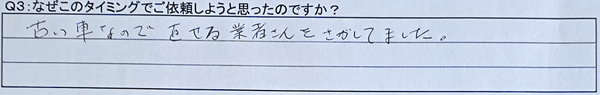 Q3:なぜこのタイミングでご依頼しようと思ったのですか？
古い車なので直せる業者さんをさがしてました。